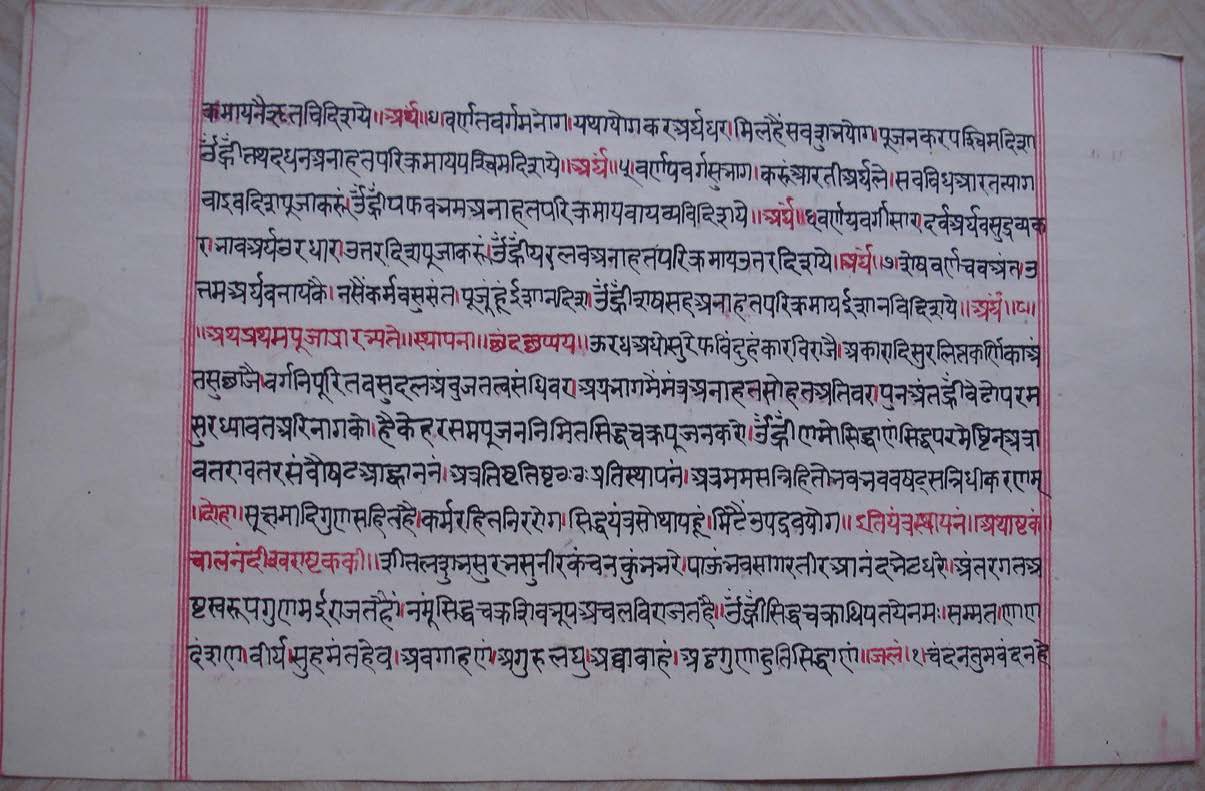 क्रमायनैऋतविदिशये॥अर्घं॥४।वर्णतवर्गमनोग।यथायोगकरअर्घधर।मिलहैंसवशुभयोग।पूजनकरपश्चिमदिशा
ॐह्रींतथदधनअनाहतपरिक्रमायपश्चिमदिशये॥अर्घं॥५।वर्णपवर्गसुभाग।करूंआरतीअर्घले।सवविधआरतत्याग
वाइवदिशपूजाकरूं।ॐह्रींपफवभमअनाहतपरिक्रमायवायव्यविदिशये॥अर्घं॥६।वर्णयवर्गीसार।दर्वअर्घवसुद्रव्यक
र।भावअर्घउरधार।उत्तरदिशपूजाकरूं।ॐह्रींयरलवअनाहतपरिक्रमायउत्तरदिशये॥अर्घं॥७।शेषवर्णचवअंत।उ
त्तमअर्घवनायकै।नसैंकर्मवसुसंत।पूजूंहूंईशानदिश।ॐह्रींशषसहअनाहतपरिक्रमायईशानविदिशये॥अर्घं॥८॥
॥अथप्रथमपूजाप्रारभ्यते॥स्थापना॥छंदछप्पय॥ऊरधअधोसुरेफविंदुहंकारविराजै।अकारादिसुरलिप्तकर्णिकाअं
तसुछाजै।वर्गनिपूरितवसुदलअंवुजतत्वसंधिवर।अग्रभागमेंमंत्रअनाहतसोहतअतिवर।पुनअंतह्रींवेढोपरम
सुरध्यावतअरिनागको।ह्वैकेहरसमपूजननिमितसिद्धचक्रपूजनकरो।ॐह्रींणमोसिद्धाणंसिद्धपरमेष्टिन्अत्रा
वतरावतरसंवौषटआह्वाननं।अत्रतिष्टतिष्टठःठःप्रतिस्थापनं।अत्रममसन्निहितोभवभववषट्सन्निधीकरणम्
॥दोहा॥सूक्ष्मादिगुणसहितहै।कर्मरहितनिररोग।सिद्धयंत्रसोथापहूं।मिटैंउपद्रवयोग॥इतियंत्रस्थापनं॥अथाष्टकं॥
चालनंदीश्वराष्टककी॥शीतलशुभसुरभसुनीरकंचनकुंभभरे।पाऊंभवसागरतीरआनंदभेटधरे।अंतरगतअ
ष्टस्वरूपगुणमईराजतहैं।नमूंसिद्धचक्रशिवभूपअचलविराजतहै।ॐह्रींसिद्धचक्राधिपतयेनमः।सम्मत।णाण
दंशण।वीर्य।सुहमंतहेव।अवगाहणं।अगुरुलघु।अव्वावाहं।अट्ठगुणाहुतिसिद्धाणं॥जलं।१।चंदनतुमवंदनहे